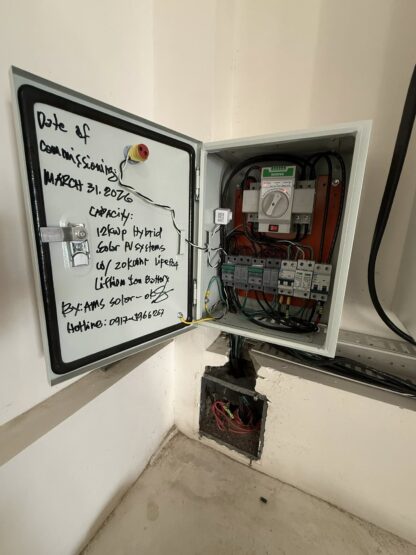 Date of
Commissioning
MARCH 31. 2026
CAPACITY:
12kwp Hybrid
Solar PV Systems
w/ 20kWhr LiFePO4
Lithium Ion Battery
By: AMS Solar
Hotline: